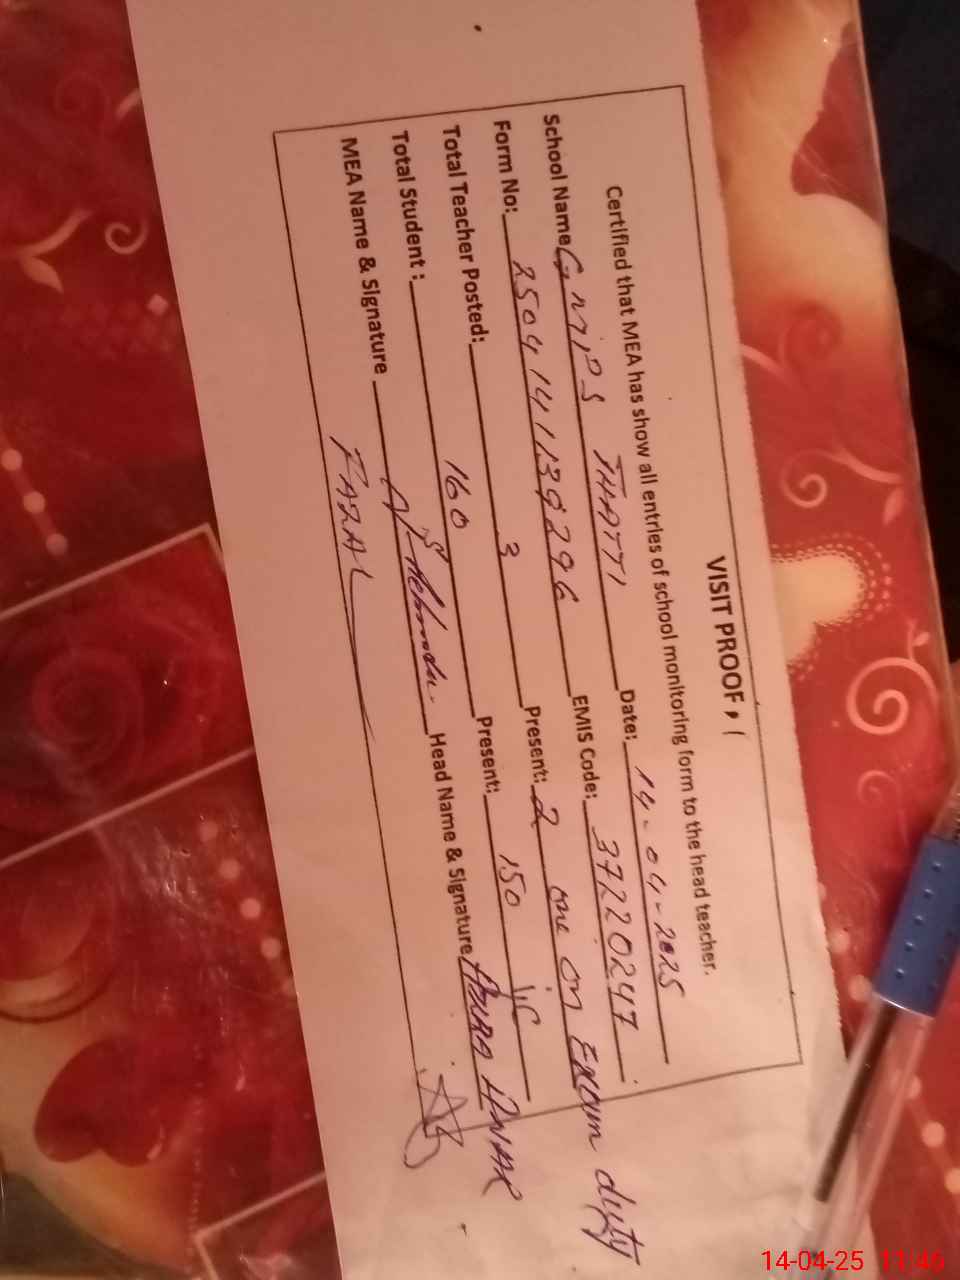 VISIT PROOF
Certified that MEA has show all entries of school monitoring form to the head teacher.
School Name GMPS THATTI Date: 14-04-2025
Form No: EMIS Code: 37220247
Total Teacher Posted: 3 Present: 2 one on Exam duty
Total Student: 160 Present: 150
MEA Name & Signature FAZAL Head Name & Signature
14-04-25 11:46